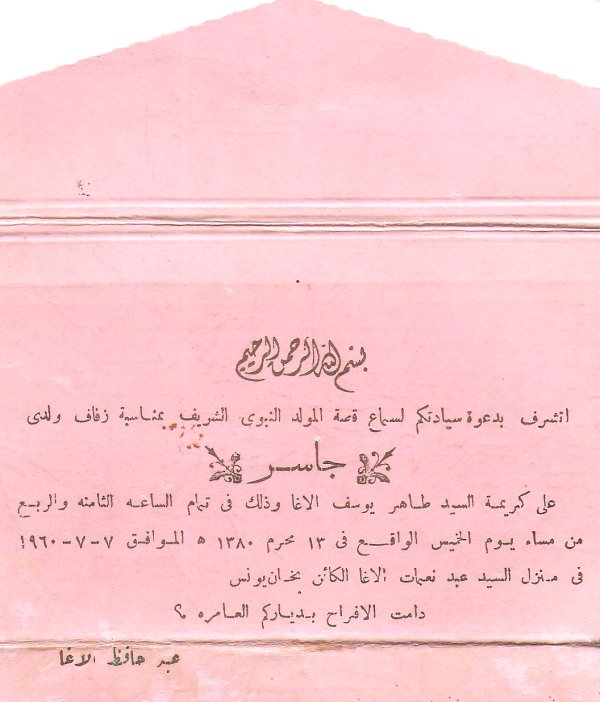 بسم الله الرحمن الرحيم
اتشرف بدعوة سيادتكم لسماع قصة المولد النبوى الشريف بمناسبة زفاف ولدى
جاسر
على كريمة السيد طاهر يوسف الاغا وذلك فى تمام الساعه الثامنه والربع
من مساء يوم الخميس الواقع فى ١٣ محرم ١٣٨٠ ه الموافق ٧-٧-١٩٦٠
فى منزل السيد عبد نعمات الاغا الكائن بخان يونس
دامت الافراح بدياركم العامره
عبد حافظ الاغا